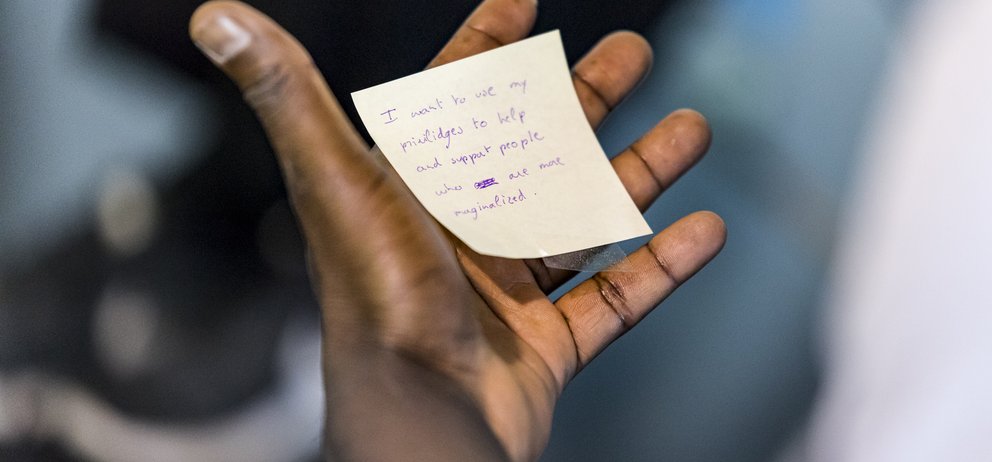 I want to use my
priviledges to help
and support people
who are more
marginalized.